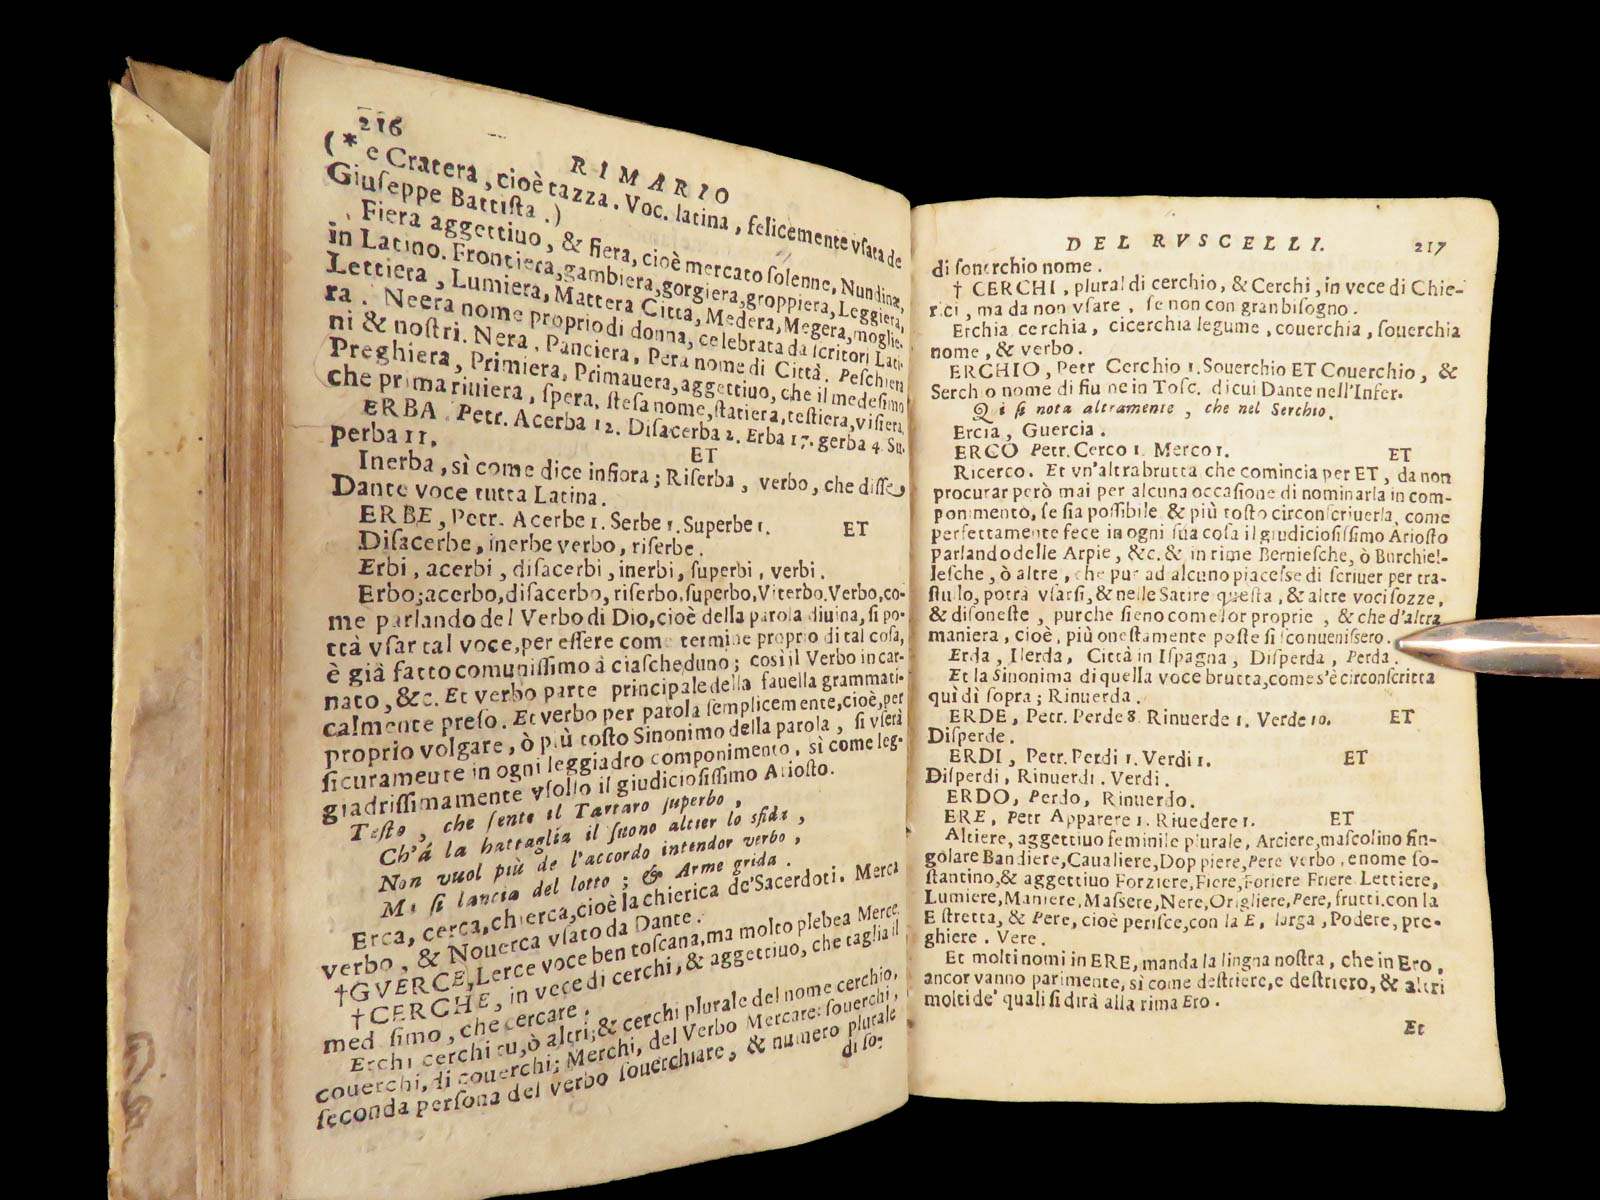 216
RIMARIO
(* e Cratera, cioè tazza. Voc. latina, felicemente vſata de
Giuſeppe Battiſta.)
Fiera aggettiuo, & fiera, cioè mercato ſolenne, Nundinæ,
in Latino. Frontiera, gambiera, gorgiera, groppiera, Leggiera,
Lettiera, Lumiera, Mattera Città, Medera, Megera, moglie-
ra. Neera nome proprio di donna, celebrata da ſcritori Lati-
ni & noſtri. Nera, Panciera, Pera nome di Città. Peſchiera
Preghiera, Primiera, Primauera, aggettiuo, che il medeſimo
che prima riuiera, ſpera, ſteſa nome, ſtatiera, teſtiera, viſiera,
ERBA Petr. Acerba 12. Diſacerba 2. Erba 17. gerba 4. Su-
perba 11. ET
Inerba, sì come dice infiora; Riſerba, verbo, che diſſe
Dante voce tutta Latina.
ERBE, Petr. Acerbe 1. Serbe 1. Superbe 1. ET
Diſacerbe, inerbe verbo, riſerbe.
Erbi, acerbi, diſacerbi, inerbi, ſuperbi, verbi.
Erbo; acerbo, diſacerbo, riſerbo, ſuperbo, Viterbo. Verbo, co-
me parlando del Verbo di Dio, cioè della parola diuina, ſi po-
ttà vſar tal voce, per eſſere come termine proprio di tal coſa,
è già fatto comuniſſimo à ciaſcheduno; così il Verbo in car-
nato, &c. Et verbo parte principale della fauella grammati-
calmente preſo. Et verbo per parola ſemplicemente, cioè, per
proprio volgare, ò più toſto Sinonimo della parola, ſi vſerà
ſicurameute in ogni leggiadro componimento, sì come leg-
giadriſſimamente vſollo il giudicioſiſſimo Arioſto.
Toſto, che ſente il Tartaro ſuperbo,
Ch'á la battaglia il ſuono altier lo sfida,
Non vuol più de l'accordo intendor verbo,
Ma ſi lancia del lotto; & Arme grida.
Erca, cerca, chierca, cioè la chierica de' Sacerdoti. Merca
verbo, & Nouerca vſato da Dante.
†GVERCE, Lerce voce ben toſcana, ma molto plebea Merce,
†CERCHE, in vece di cerchi, & aggettiuo, che taglia il
medſimo, che cercare.
Erchi cerchi tu, ò altri; & cerchi plurale del nome cerchio,
couerchi, di couerchi; Merchi, del Verbo Mercare: ſouerchi,
ſeconda perſona del verbo ſouerchiare, & numero plurale
di ſo-
DEL RVSCELLI. 217
di ſouerchio nome.
† CERCHI, plural di cerchio, & Cerchi, in vece di Chie-
rici, ma da non vſare, ſe non con gran biſogno.
Erchia cerchia, cicerchia legume, couerchia, ſouerchia
nome, & verbo.
ERCHIO, Petr Cerchio 1. Souerchio ET Couerchio, &
Serchio nome di fiume in Toſc. di cui Dante nell'Infer.
Qui ſi nota altramente, che nel Serchio.
Ercia, Guercia.
ERCO Petr. Cerco 1. Merco 1. ET
Ricerco. Et vn'altra brutta che comincia per ET, da non
procurar però mai per alcuna occaſione di nominarla in com-
ponimento, ſe ſia poſſibile & più toſto circonſcriuerla, come
perfettamente fece in ogni ſua coſa il giudicioſiſſimo Arioſto
parlando delle Arpie, &c. & in rime Berniеſche, ò Burchiel-
leſche, ò altre, che pur ad alcuno piaceſse di ſcriuer per tra-
ſtullo, potrà vſarſi, & nelle Satire queſta, & altre voci ſozze,
& diſoneſte, purche ſieno come lor proprie, & che d'altra
maniera, cioè, più oneſtamente poſte ſi ſconueniſsero.
Erda, Ilerda, Città in Iſpagna, Diſperda, Perda.
Et la Sinonima di quella voce brutta, come s'è circonſcritta
quì di ſopra; Rinuerda.
ERDE, Petr. Perde 8. Rinuerde 1. Verde 10. ET
Diſperde.
ERDI, Petr. Perdi 1. Verdi 1. ET
Diſperdi, Rinuerdi. Verdi.
ERDO, Perdo, Rinuerdo.
ERE, Petr Apparere 1. Riuedere 1. ET
Altiere, aggettiuo feminile plurale, Arciere, maſcolino ſin-
golare Bandiere, Caualiere, Doppiere, Pere verbo, e nome ſo-
ſtantino, & aggettiuo Forziere, Fiere, Foriere Friere Lettiere,
Lumiere, Maniere, Maſsere, Nere, Origliere, Pere, frutti. con la
E ſtretta, & Pere, cioè periſce, con la E, larga, Podere, pre-
ghiere. Vere.
Et molti nomi in ERE, manda la lingna noſtra, che in Ero,
ancor vanno parimente, sì come deſtriere, e deſtriero, & altri
molti de' quali ſi dirà alla rima Ero.
Et